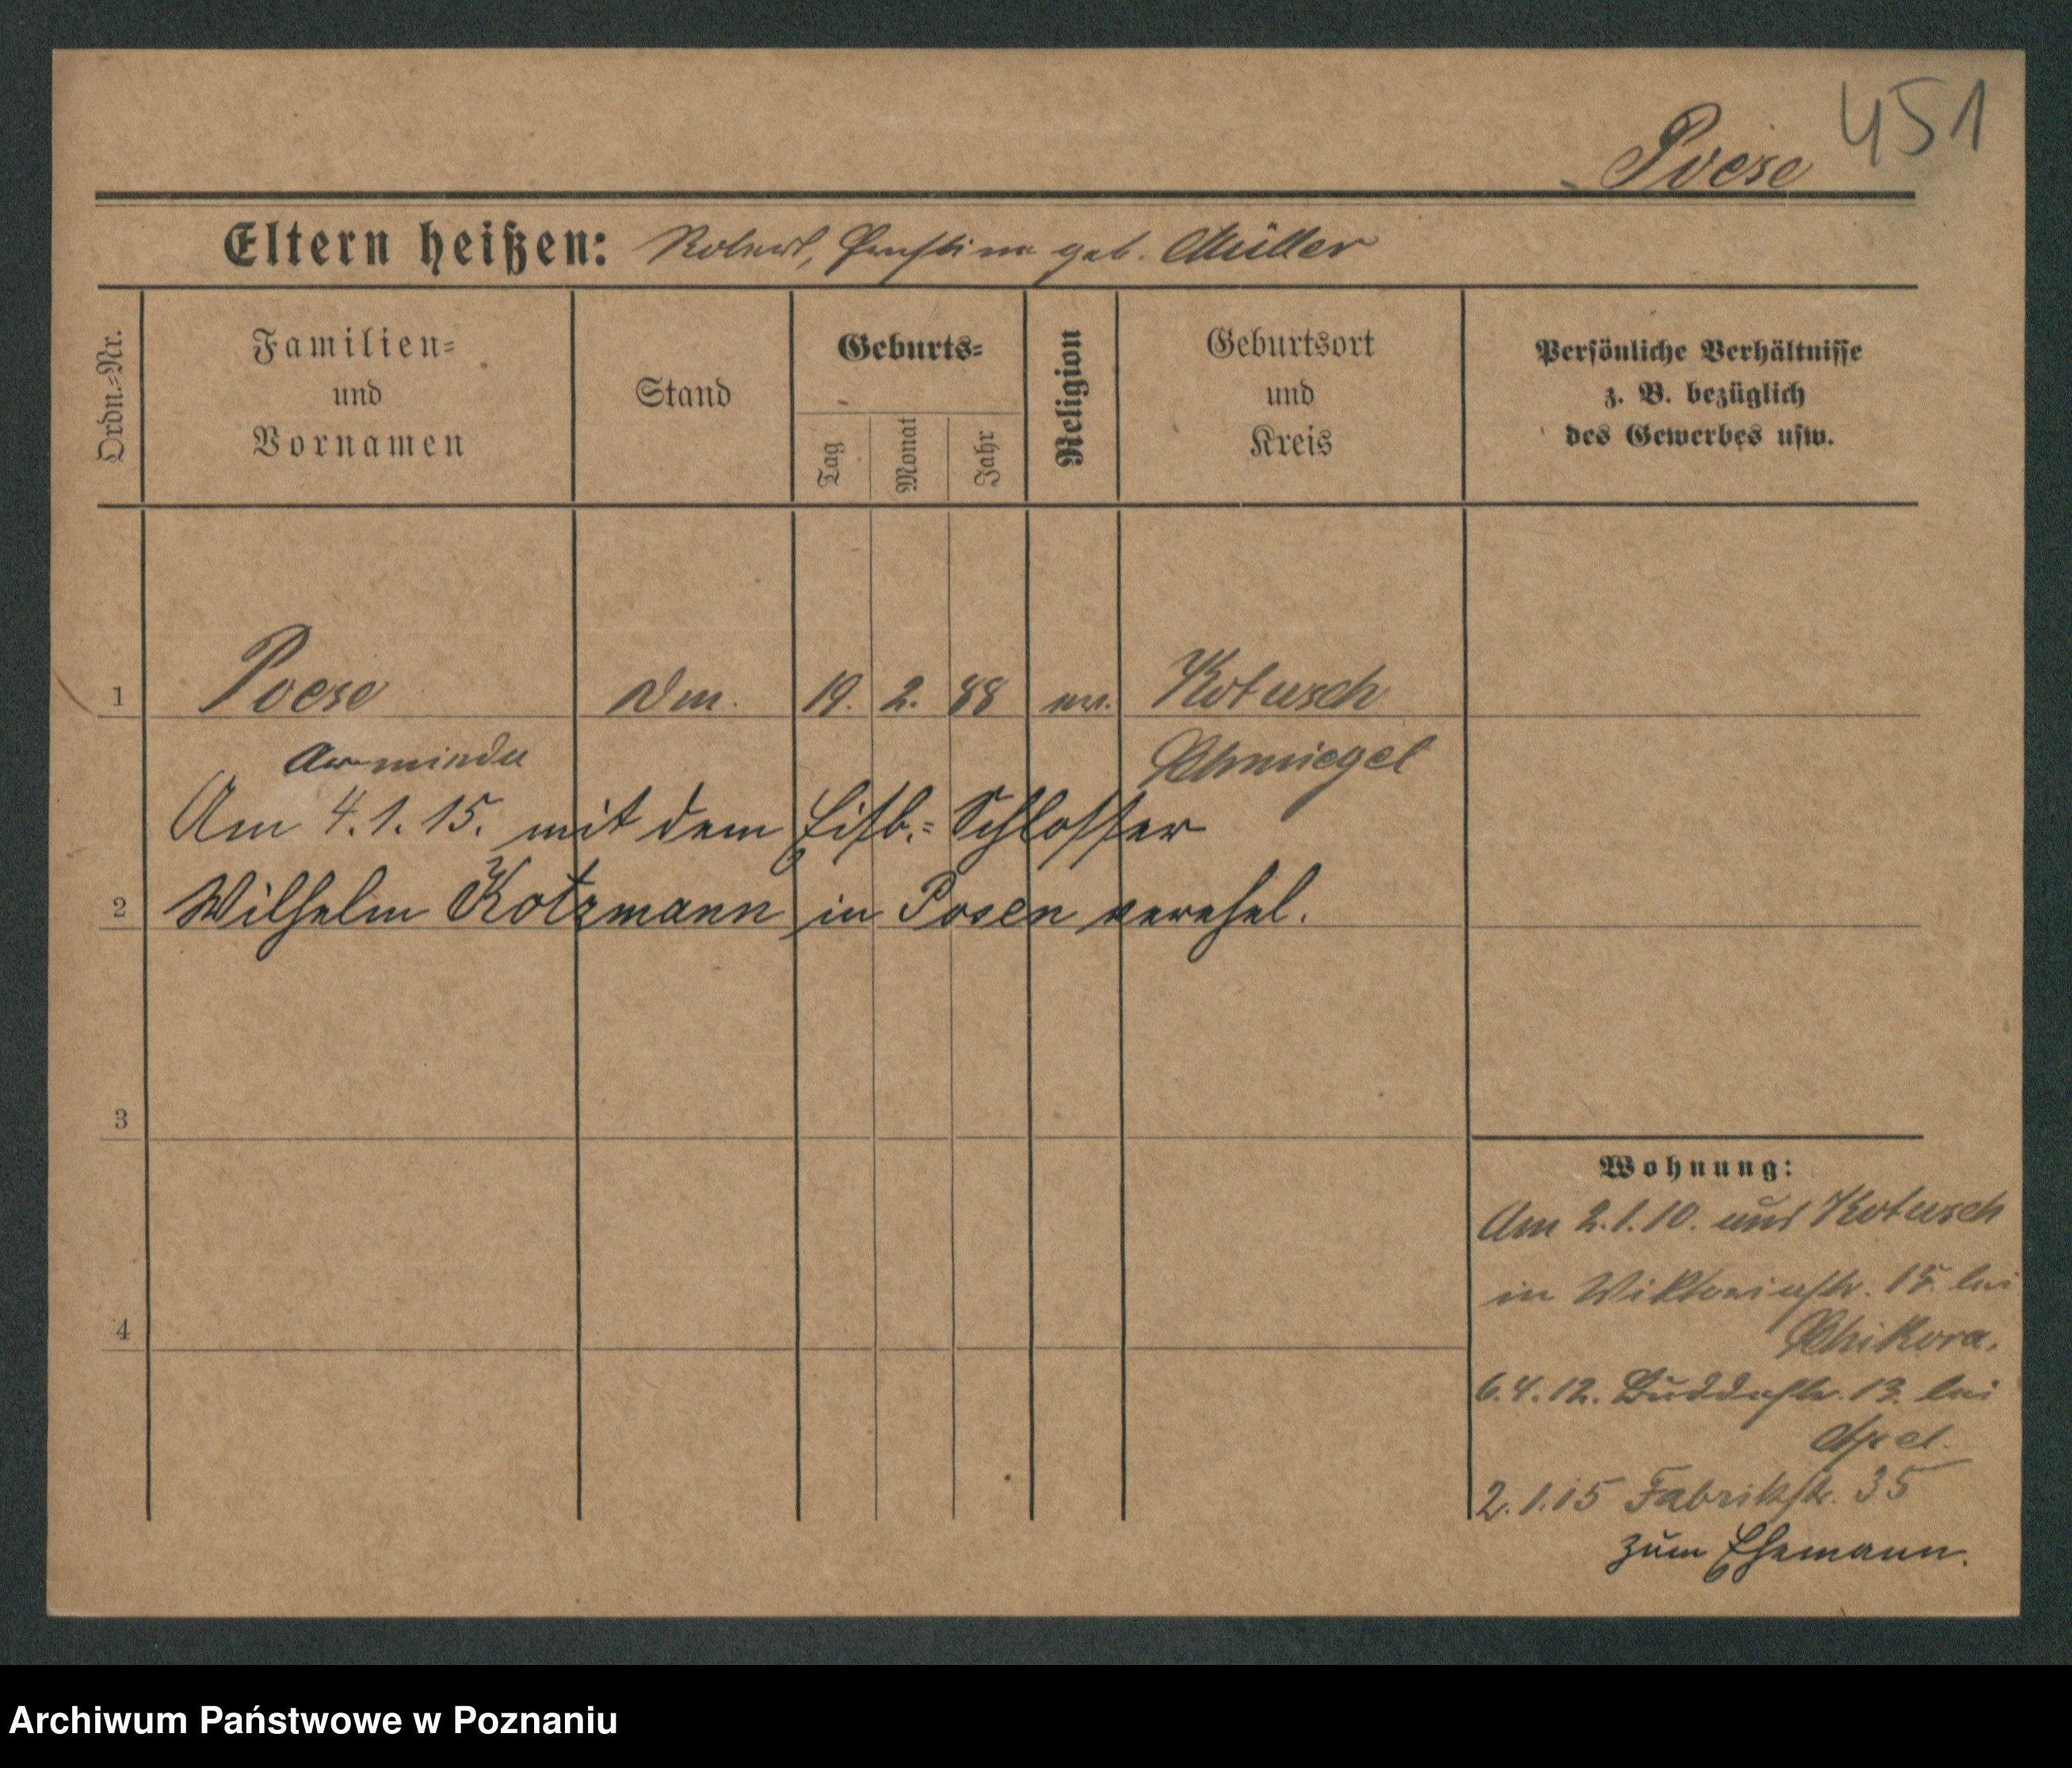 451
Poese
Eltern heißen: Robert, geb. Müller
Ordn.-Nr.
Familien-
und
Vornamen
Stand
Geburts-
Tag
Monat
Jahr
Religion
Geburtsort
und
Kreis
Persönliche Verhältnisse
z. B. bezüglich
des Gewerbes usw.
1 Poese 19. 2. 88 ev. Kotusch
Schmiegel
Am 4.1.15. mit dem Eisb.-Schlosser
2 Wilhelm Kotzmann in Posen verehel.
3
4
Wohnung:
Am 2.1.10. aus Kotusch
in Viktoriastr. 15. bei
Schikora.
6.4.12. Buddestr. 13. bei
Apel.
2.1.15 Fabrikstr. 35
zum Ehemann.
Archiwum Państwowe w Poznaniu